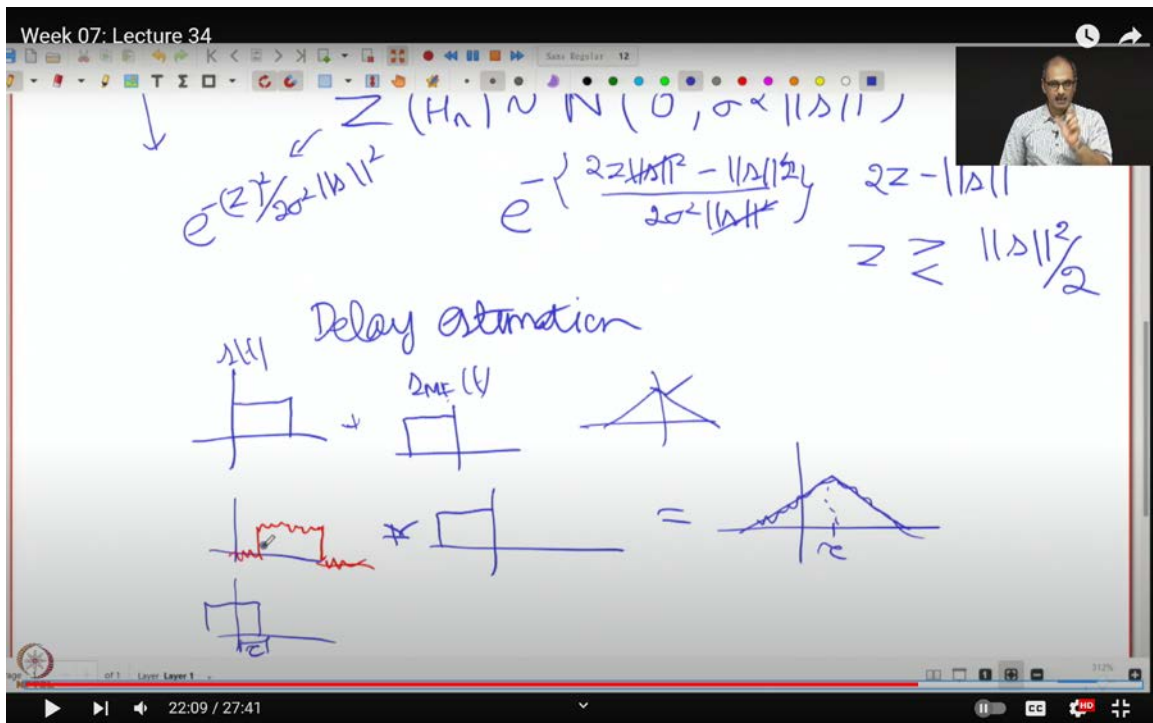 Week 07: Lecture 34
Sans Regular 12
Z (H_n) ~ N (0, σ² ||s||²)
e^{-(z)²/2σ²||s||²}
e^{-{2z||s||² - ||s||⁴}/2σ²||s||²}
2z - ||s||
z ≷ ||s||²/2
Delay estimation
s(t)
s_MF(t)
*
=
τ
τ
of 1 Layer Layer 1
312%
NPTEL
22:09 / 27:41
CC
HD